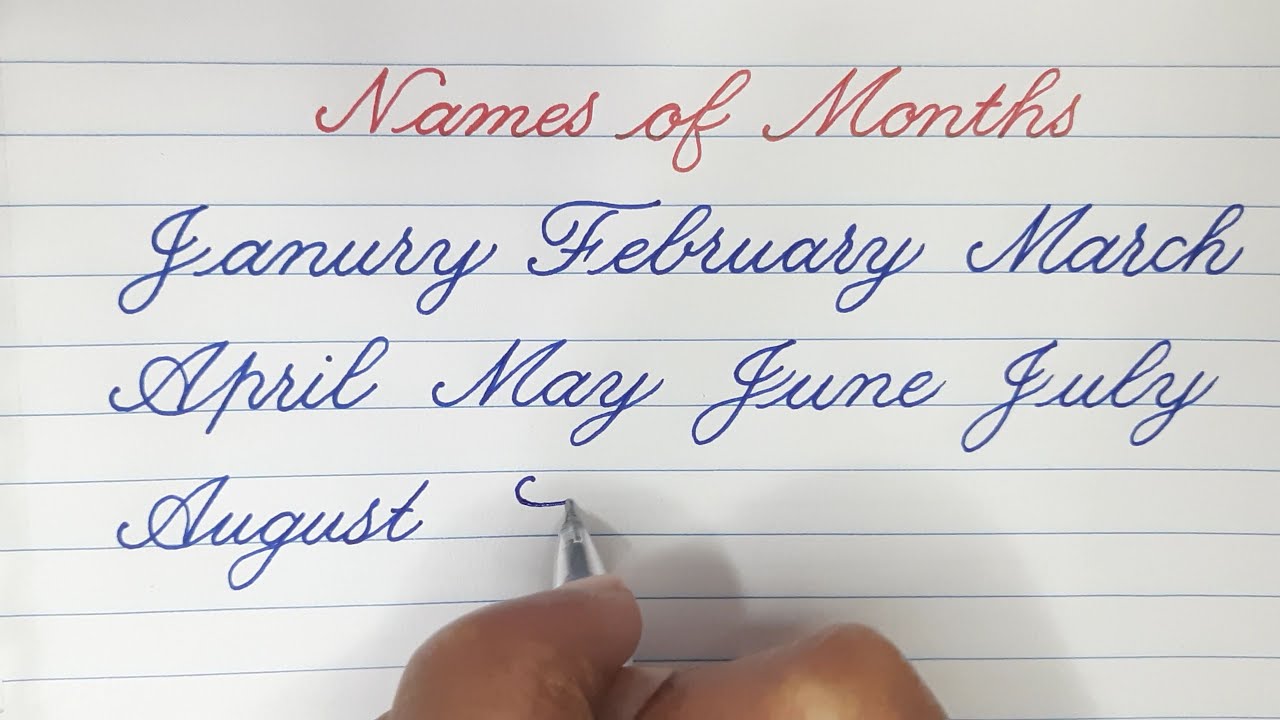 Names of Months
Janury February March
April May June July
August